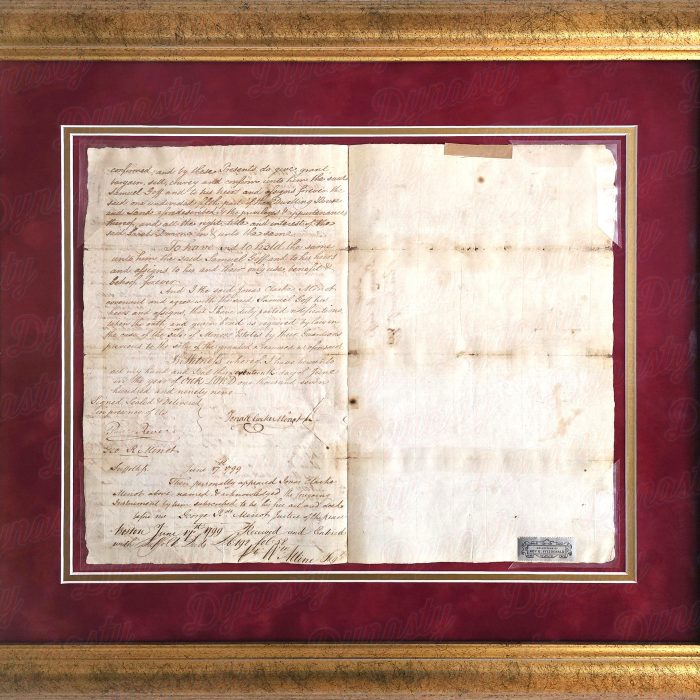 confirmed, and by these Presents do give, grant
bargain, sell, convey and confirm unto him the said
Samuel Goff and to his heirs and assigns forever the
said one undivided part of the Dwelling House
and Lands aforedescribed, & the privileges & appurtenances
thereof, and all the right, title and interest of the
said in & unto the same
To have and to hold the same
unto him the said Samuel Goff and to his heirs
and assigns to his and their only use, benefit &
behoof forever
And I the said Jonas Clarke Minot
covenant and agree with the said Samuel Goff his
heirs and assigns, that I have duly posted notifications
upon the oath and given bond as required by law in
the case of the Sale of Minors Estates by their Guardians
previous to the sale of the granted premises aforesaid
In Witness whereof I have hereunto
set my hand and Seal this day of June
in the year of OUR LORD one thousand seven
hundred and ninety nine
Signed, Sealed & Delivered
in presence of us
Jonas Clarke Minot
Geo. R. Minot
Suffolk ss June 17th 1799
Then personally appeared Jonas Clarke
Minot above named & acknowledged the foregoing
Instrument by him subscribed to be his free act and deed
before me George Rds Minot Justice of the peace
Boston June 17th 1799 Received and Entered
with Suffolk Deeds Lib 192 fol
Wm Alline Regr
Dynasty